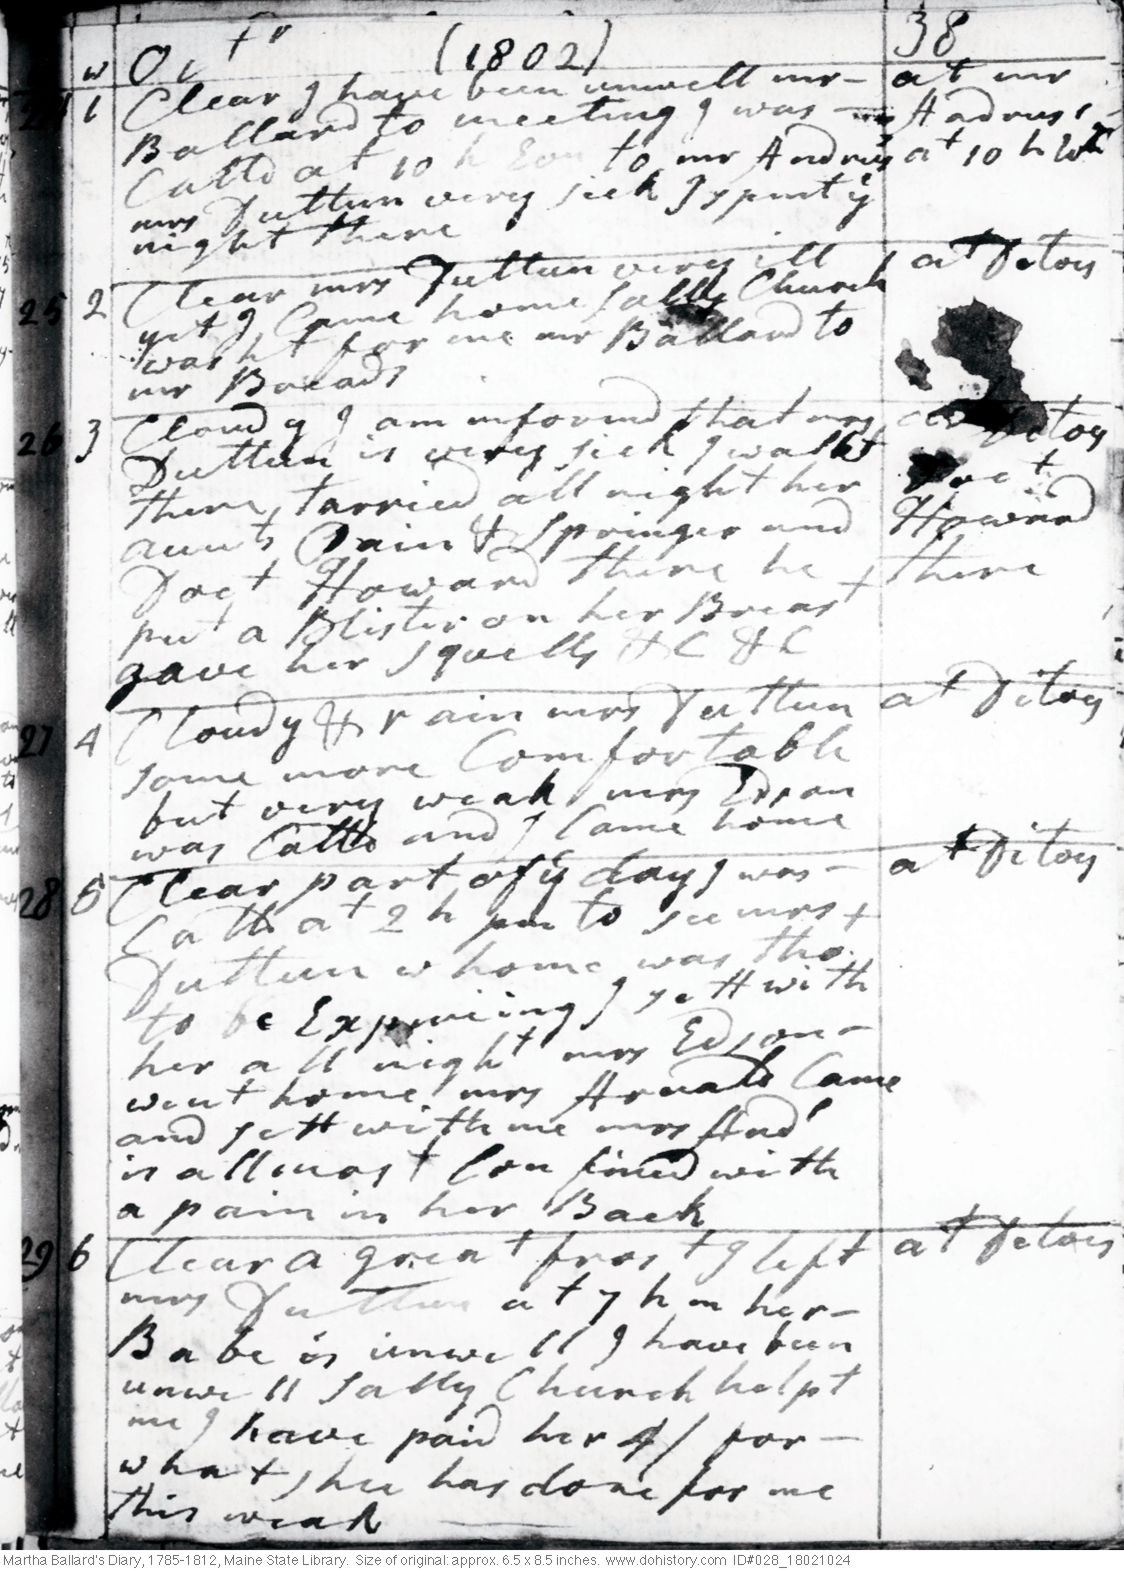 w Oct r (1802) 38
24 1 Clear I have been unwell mr- at mr
Ballard to meeting I was - Andrus,
Calld at 10 h Evn to mr Andrus at 10 h
mrs Duttun very sick I spent ÿ
night there
25 2 Clear mrs Duttun very ill at Ditoes
yet I Came home Sally Church
washt for me mr Ballard to
mr Bracads
26 3 Cloudy I am informd that mrs at Ditoes
Duttun is very sick I walkt Doct
there, tarried all night her Howard
aunts Pain & Springer and there
Doct Howard there he +
put a Blister on her Breast
gave her squells &C &C
27 4 Cloudy & rain mrs Duttun at Ditoes
some more Comfortable
but very weak mrs Edson
was Calld and I Came home
28 5 Clear part of ÿ day I was - at Ditoes
Calld at 2 h pm to see mrs +
Duttun whome was tho.
to be Expiriing I sett with
her all night mrs Edson -
went home mrs Arnald Came
and sett with me mrs And'
is allmost Confined with
a pain in her Back
29 6 Clear a great frost I left at Ditoes
mrs Duttun at 7 h m her -
Babe is unwell I have been
unwell Sally Church helpt
me I have paid her 4/ for -
what shee has done for me
this weak
Martha Ballard's Diary, 1785-1812, Maine State Library. Size of original: approx. 6.5 x 8.5 inches. www.dohistory.com ID#028_18021024